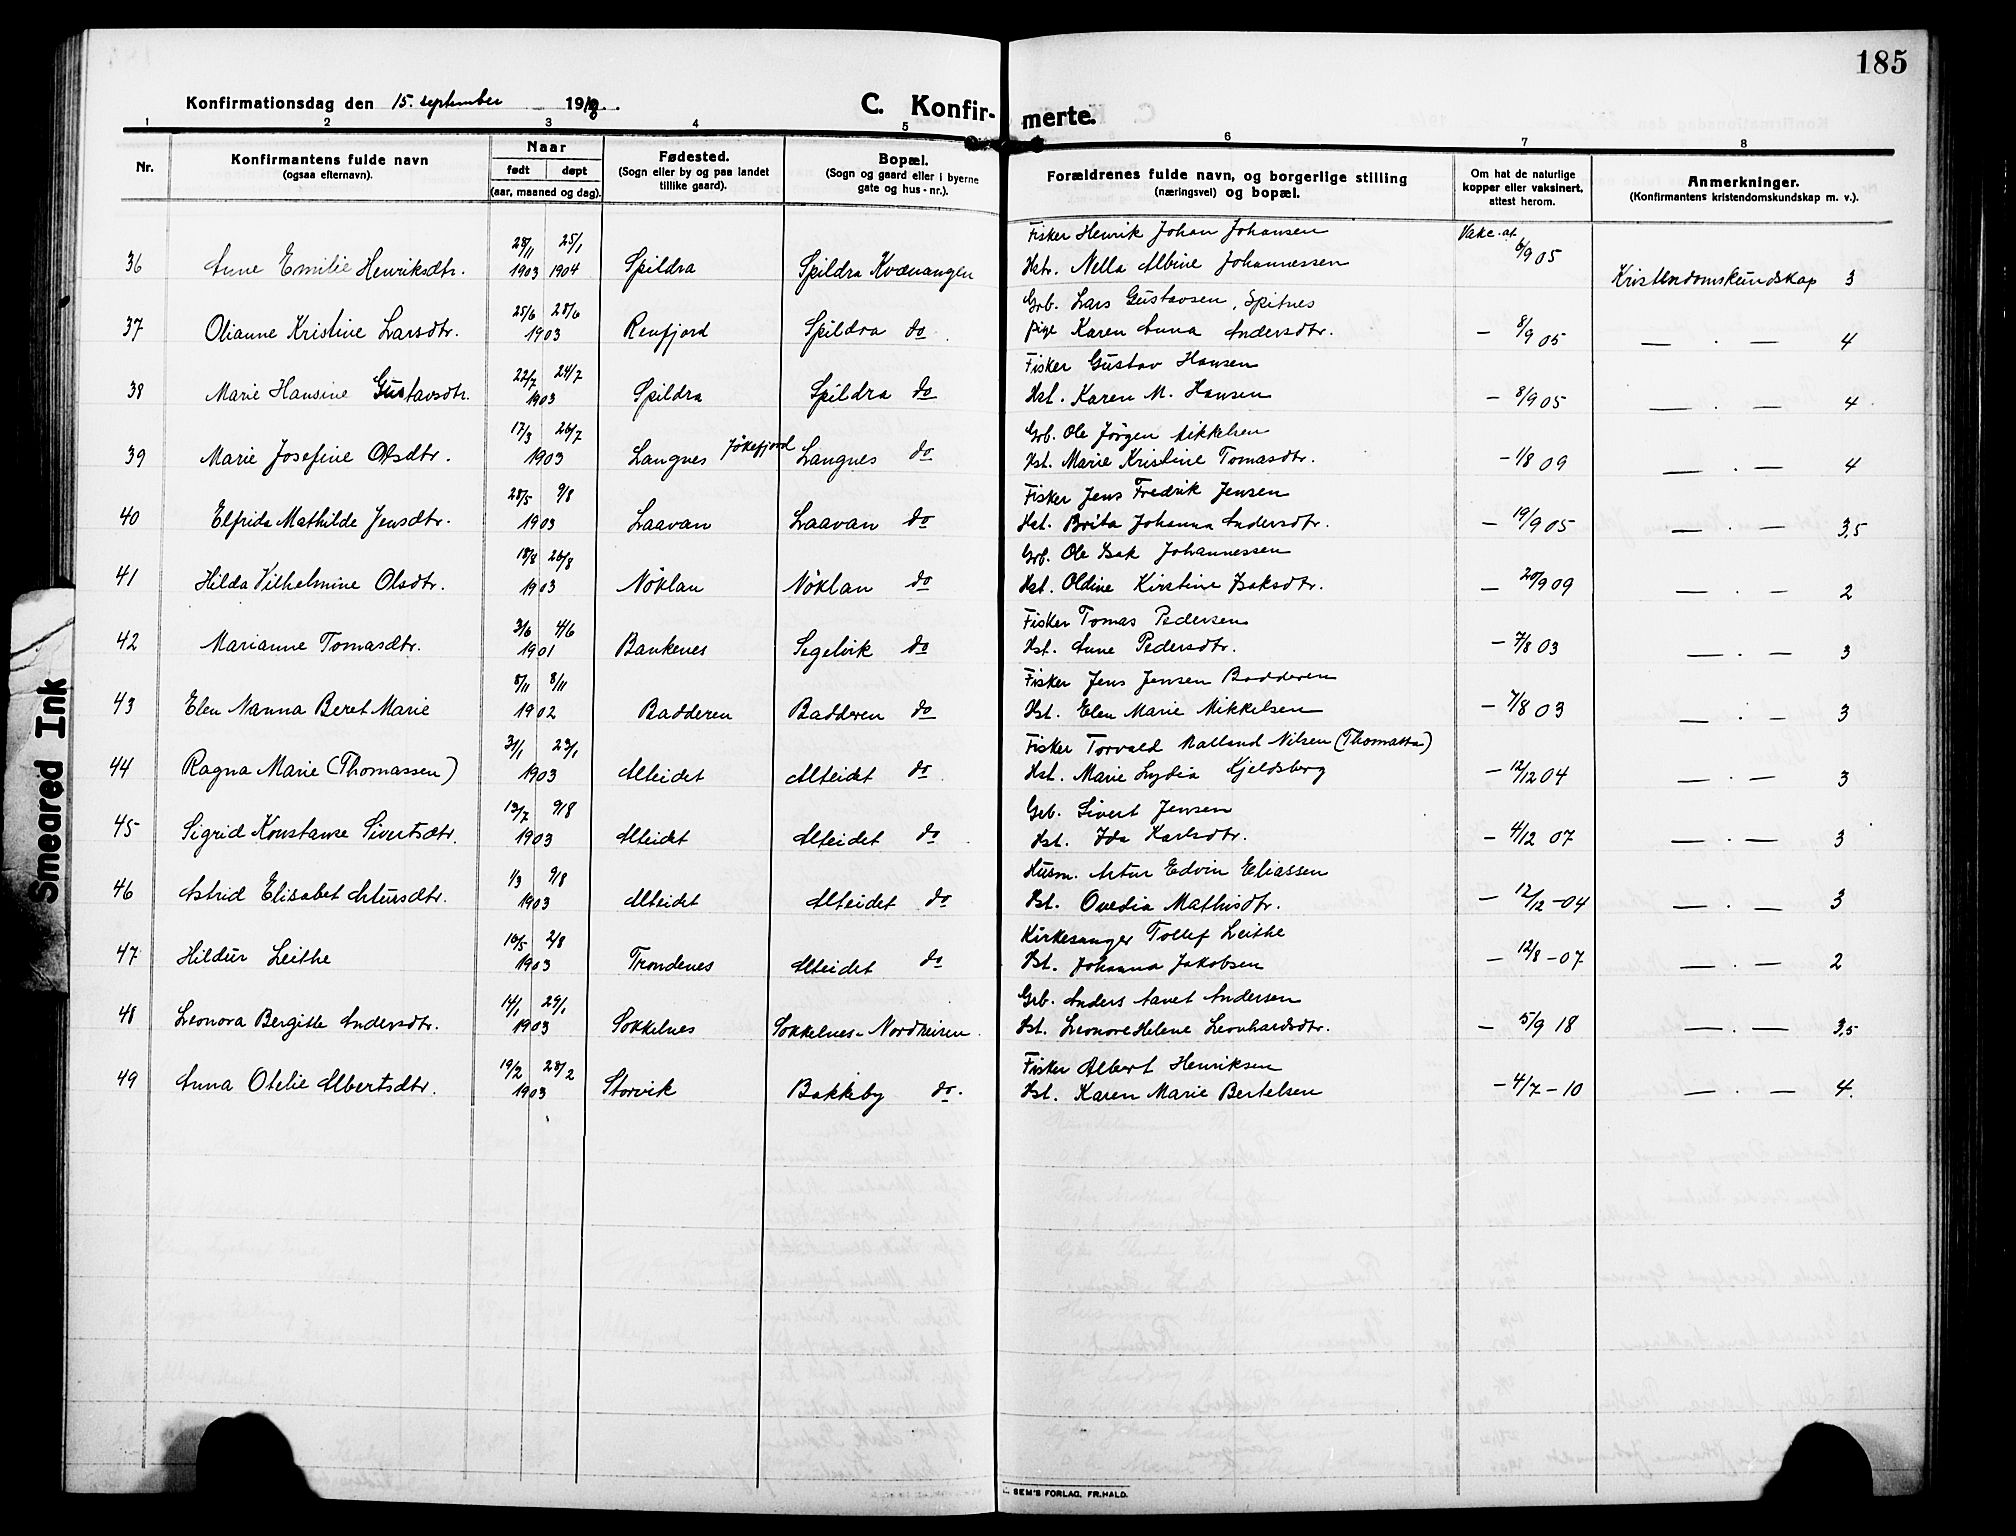 185
Konfirmationsdag den 15. september 1918.
C. Konfir-merte.
1 2 3 4 5 6 7 8
Nr.
Konfirmantens fulde navn
(ogsaa efternavn).
Naar
født døpt
(aar, maaned og dag).
Fødested.
(Sogn eller by og paa landet
tillike gaard).
Bopæl.
(Sogn og gaard eller i byerne
gate og hus-nr.).
Forældrenes fulde navn, og borgerlige stilling
(næringsvei) og bopæl.
Om hat de naturlige
kopper eller vaksinert,
attest herom.
Anmerkninger.
(Konfirmantens kristendomskundskap m. v.).
28/11 25/1 Fisker Henrik Johan Johansen Vakc. at.
36 Anne Emilie Henriksdtr. 1903 1904 Spildra Spildra Kvænangen Hstr. Nella Albine Johannessen 6/9 05 Kristendomskundskap 3
25/6 28/6 Grb. Lars Gustavsen, Spitnes
37 Olianne Kristine Larsdtr. 1903 Renfjord Spildra do. Pige Karen Anna Andersdtr. - 8/9 05 — . — 4
22/7 24/7 Fisker Gustav Hansen
38 Marie Hansine Gustavsdtr. 1903 Spildra Spildra do Hst. Karen M. Hansen - 8/9 05 — . — 4
17/3 26/7 Grb. Ole Jørgen Mikkelsen
39 Marie Josefine Olsdtr. 1903 Langnes Jøkefjord Langnes do Hst. Marie Kristine Tomasdtr. - 1/8 09 — . — 4
28/5 9/8 Fisker Jens Fredrik Jensen
40 Elfrida Mathilde Jensdtr. 1903 Laavan Laavan do Hst. Brita Johanna Andersdtr. - 19/9 05 — . — 3,5
18/8 26/8 Grb. Ole Isak Johannessen
41 Hilda Vilhelmine Olsdtr. 1903 Nøklan Nøklan do Hst. Oldine Kirstine Isaksdtr. - 20/9 09 — . — 2
3/6 4/6 Fisker Tomas Pedersen
42 Marianne Tomasdtr. 1901 Bankenes Segelvik do Hst. Anne Pedersdtr. - 7/8 03 — . — 3
8/11 8/11 Fisker Jens Jensen Badderen
43 Elen Nanna Beret Marie 1902 Badderen Badderen do Hst. Elen Marie Mikkelsen - 7/8 03 — . — 3
31/1 23/1 Fisker Torvald Nilsen
44 Ragna Marie (Thomassen) 1903 Alteidet Alteidet do. Hst. Marie Lydia Kjeldsberg - 12/12 04 — . — 3
13/7 9/8 Grb. Sivert Jensen
45 Sigrid Konstanse Sivertsdtr. 1903 Alteidet Alteidet do Hst. Ida Karlsdtr. - 4/12 07 — . — 3
1/3 9/8 Husm. Artur Edvin Eliassen
46 Astrid Elisabet Artursdtr. 1903 Alteidet Alteidet do Hst. Ovedia Mathisdtr. - 12/12 - 04 — . — 3
16/5 2/8 Kirkesanger Tollef Leithe
47 Hildur Leithe 1903 Trondenes Alteidet do Hst. Johanna Jakobsen - 12/8 - 07 — . — 2
14/1 29/1 Grb. Anders Aanet Andersen
48 Leonora Bergitte Andersdtr. 1903 Sokkelnes Sokkelnes - Nordreisen. Hst. Leonore Helene Leonhardsdtr. - 5/9 18 — . — 3,5
19/2 28/2 Fisker Albert Henriksen
49 Anna Otelie Albertsdtr. 1903 Storvik Bakkeby do. Hst. Karen Marie Bertelsen - 4/7 - 10 — . — 4.
Smeared Ink
SEM'S FORLAG, FR.HALD.